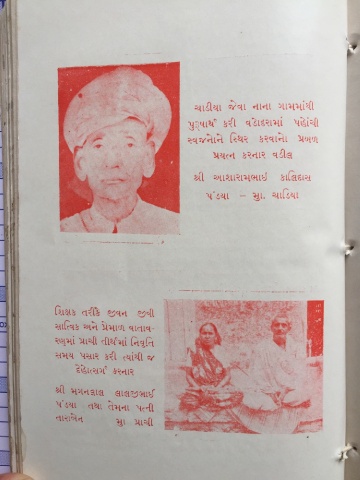 ચાડીયા જેવા નાના ગામમાંથી
પુરૂષાર્થ કરી વડોદરામાં પહોંચી
સ્વજનોને સ્થિર કરવાનો પ્રબળ
પ્રયત્ન કરનાર વડીલ
શ્રી આશારામભાઈ કાલિદાસ
પંડયા - મુ. ચાડિયા
શિક્ષક તરીકે જીવન જીવી
સાત્વિક અને પ્રેમાળ વાતાવ-
રણમાં પ્રાચી તીર્થમાં નિવૃતિ
સમય પસાર કરી ત્યાંથી જ
દેહોત્સર્ગ કરનાર
શ્રી મગનલાલ લાલજીભાઈ
પંડયા તથા તેમના પત્ની
તારાબેન મુ. પ્રાચી